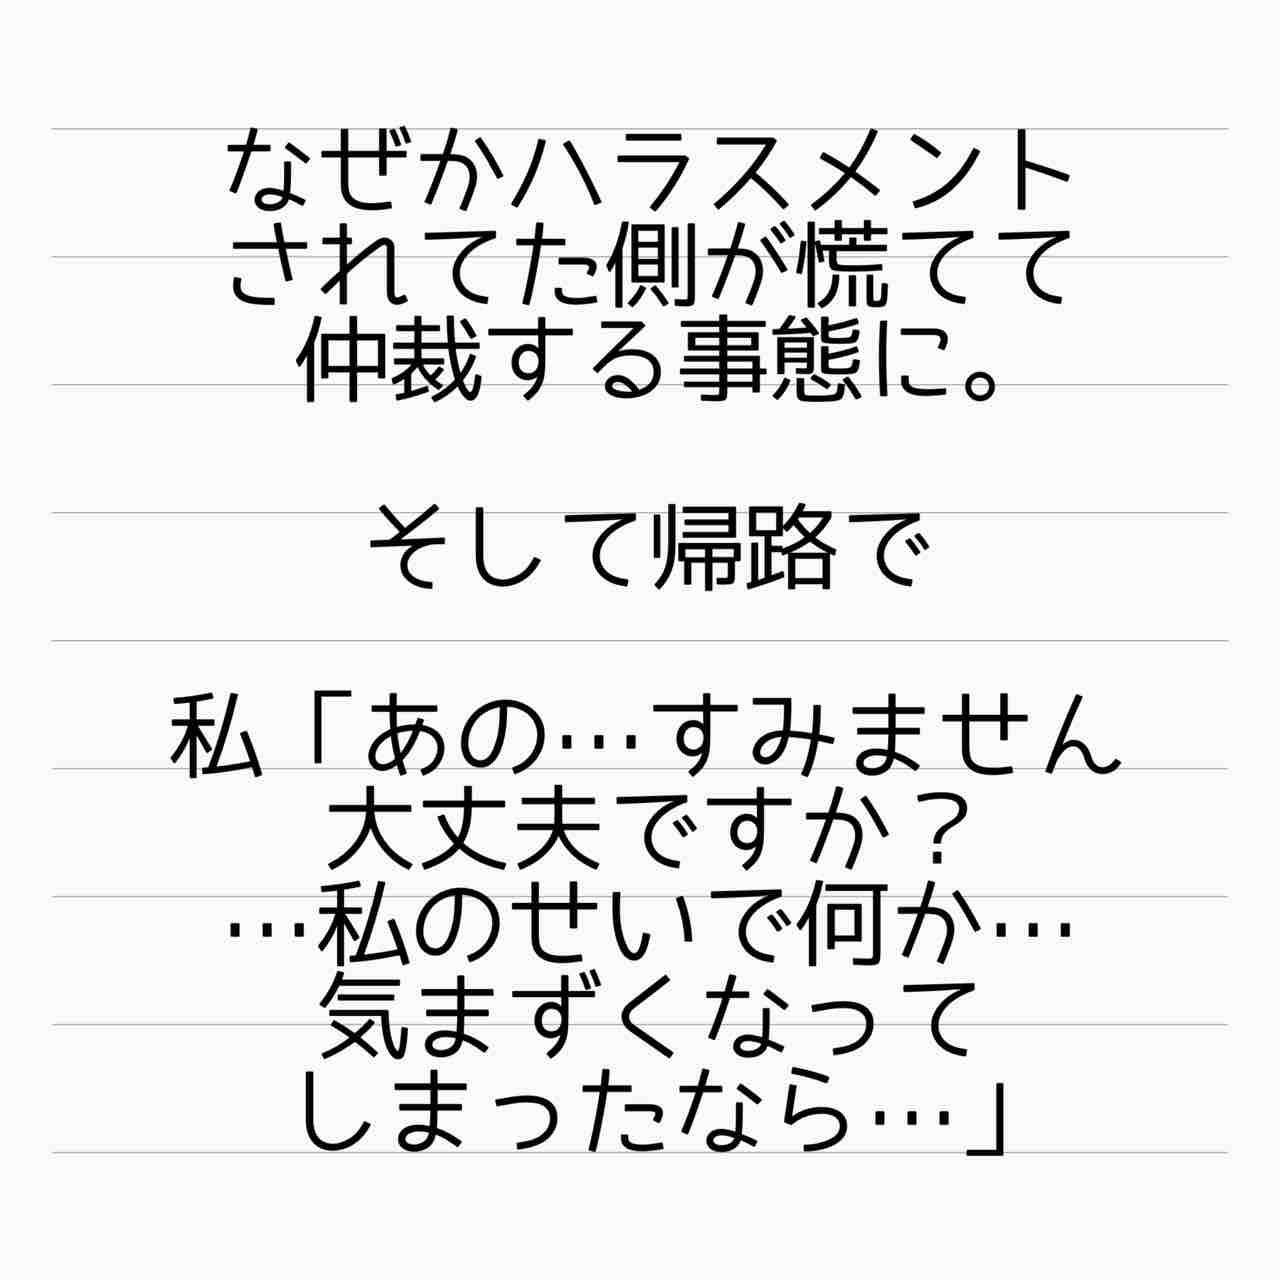 なぜかハラスメント
されてた側が慌てて
仲裁する事態に。
そして帰路で
私「あの…すみません
大丈夫ですか？
…私のせいで何か…
気まずくなって
しまったなら…」